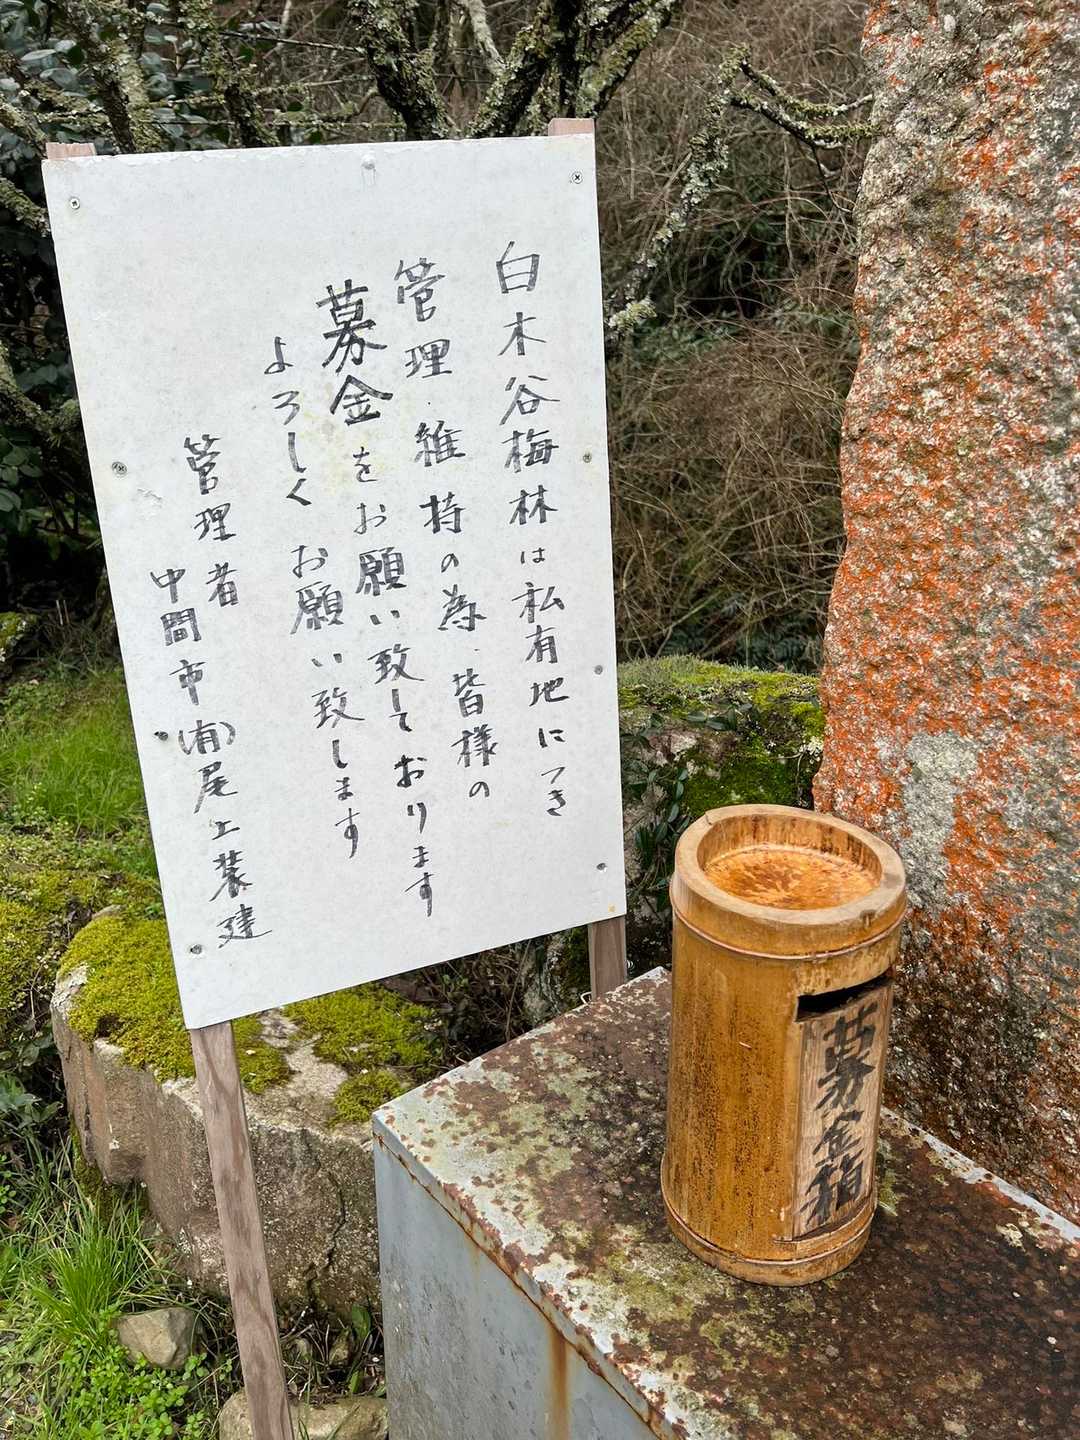 白木谷梅林は私有地につき
管理.維持の為、皆様の
募金をお願い致しております
よろしくお願い致します
管理者
中間市(有)尾上装建
募金箱